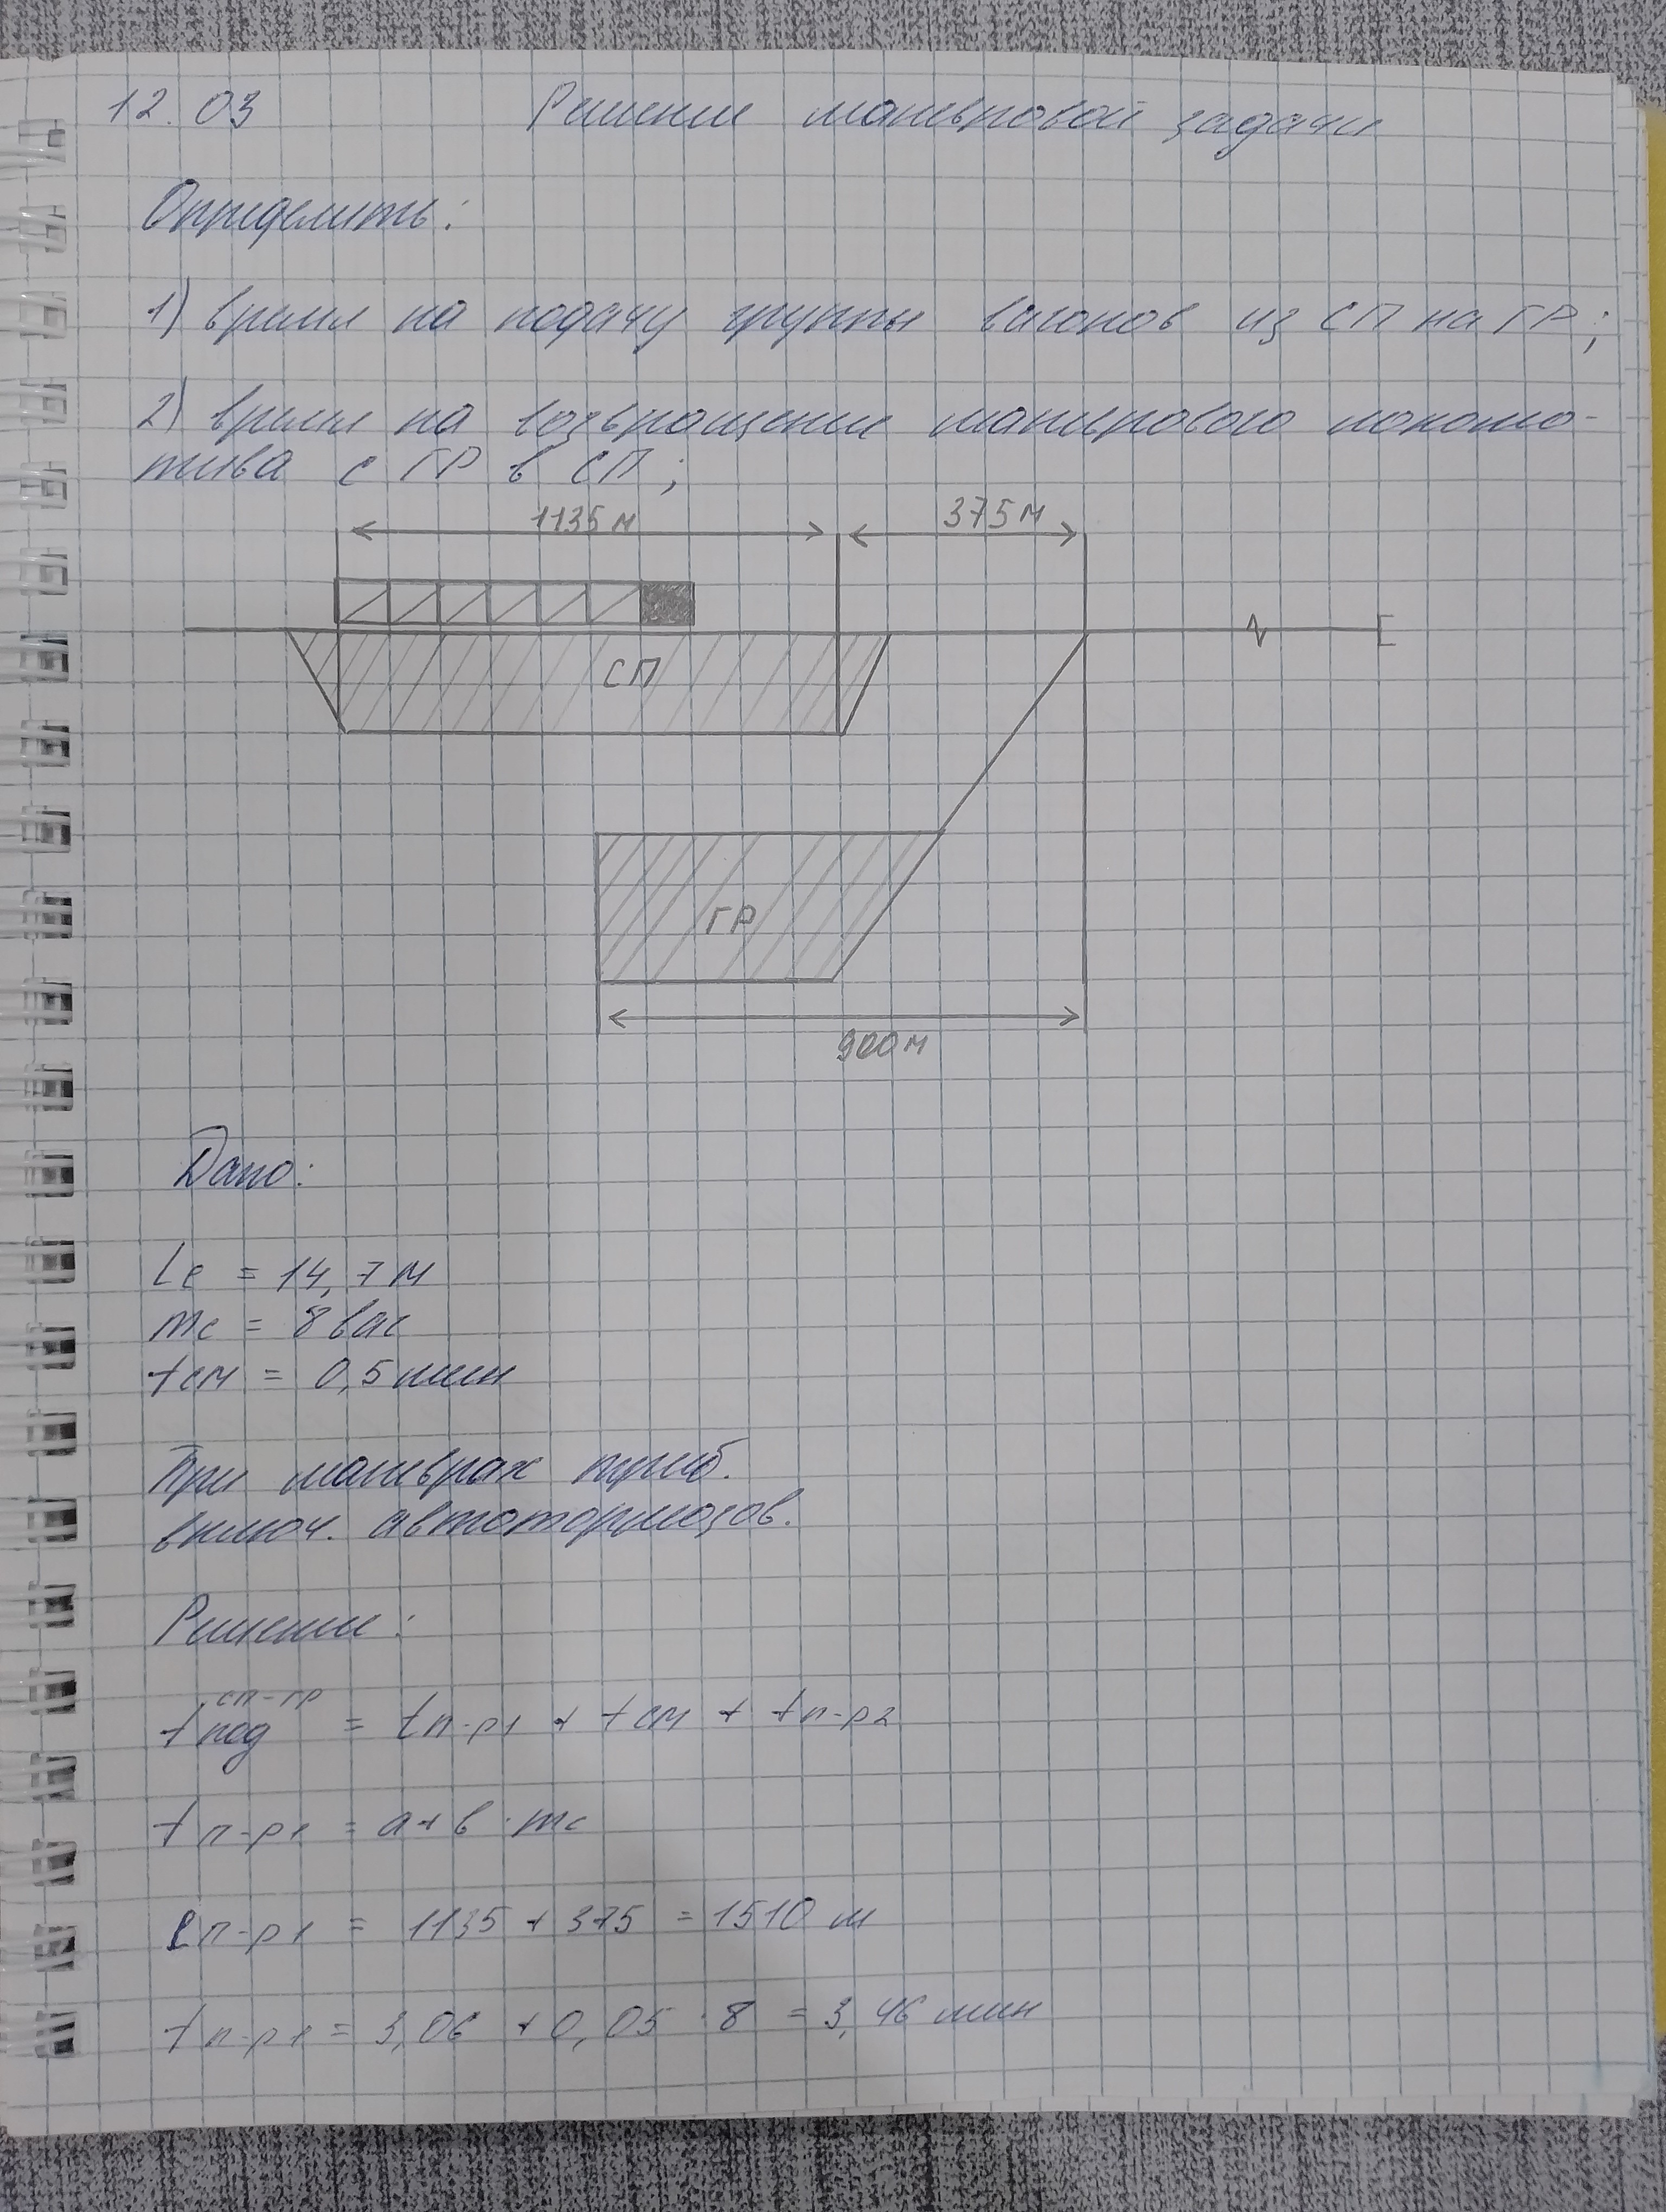 12.03 Решение маневровой задачи
Определить:
1) время на подачу группы вагонов из СП на ГР;
2) время на возвращение маневрового локомо-
тива с ГР в СП;
1135 м 375 м
СП
ГР
900 м
Дано:
Lс = 14,7 м
mс = 8 ваг
tсм = 0,5 мин
При маневрах треб.
включ. автотормозов.
Решение:
tпод сп-гр = tп-р1 + tсм + tп-р2
tп-р1 = а + в · mс
lп-р1 = 1135 + 375 = 1510 м
tп-р1 = 3,06 + 0,05 · 8 = 3,46 мин